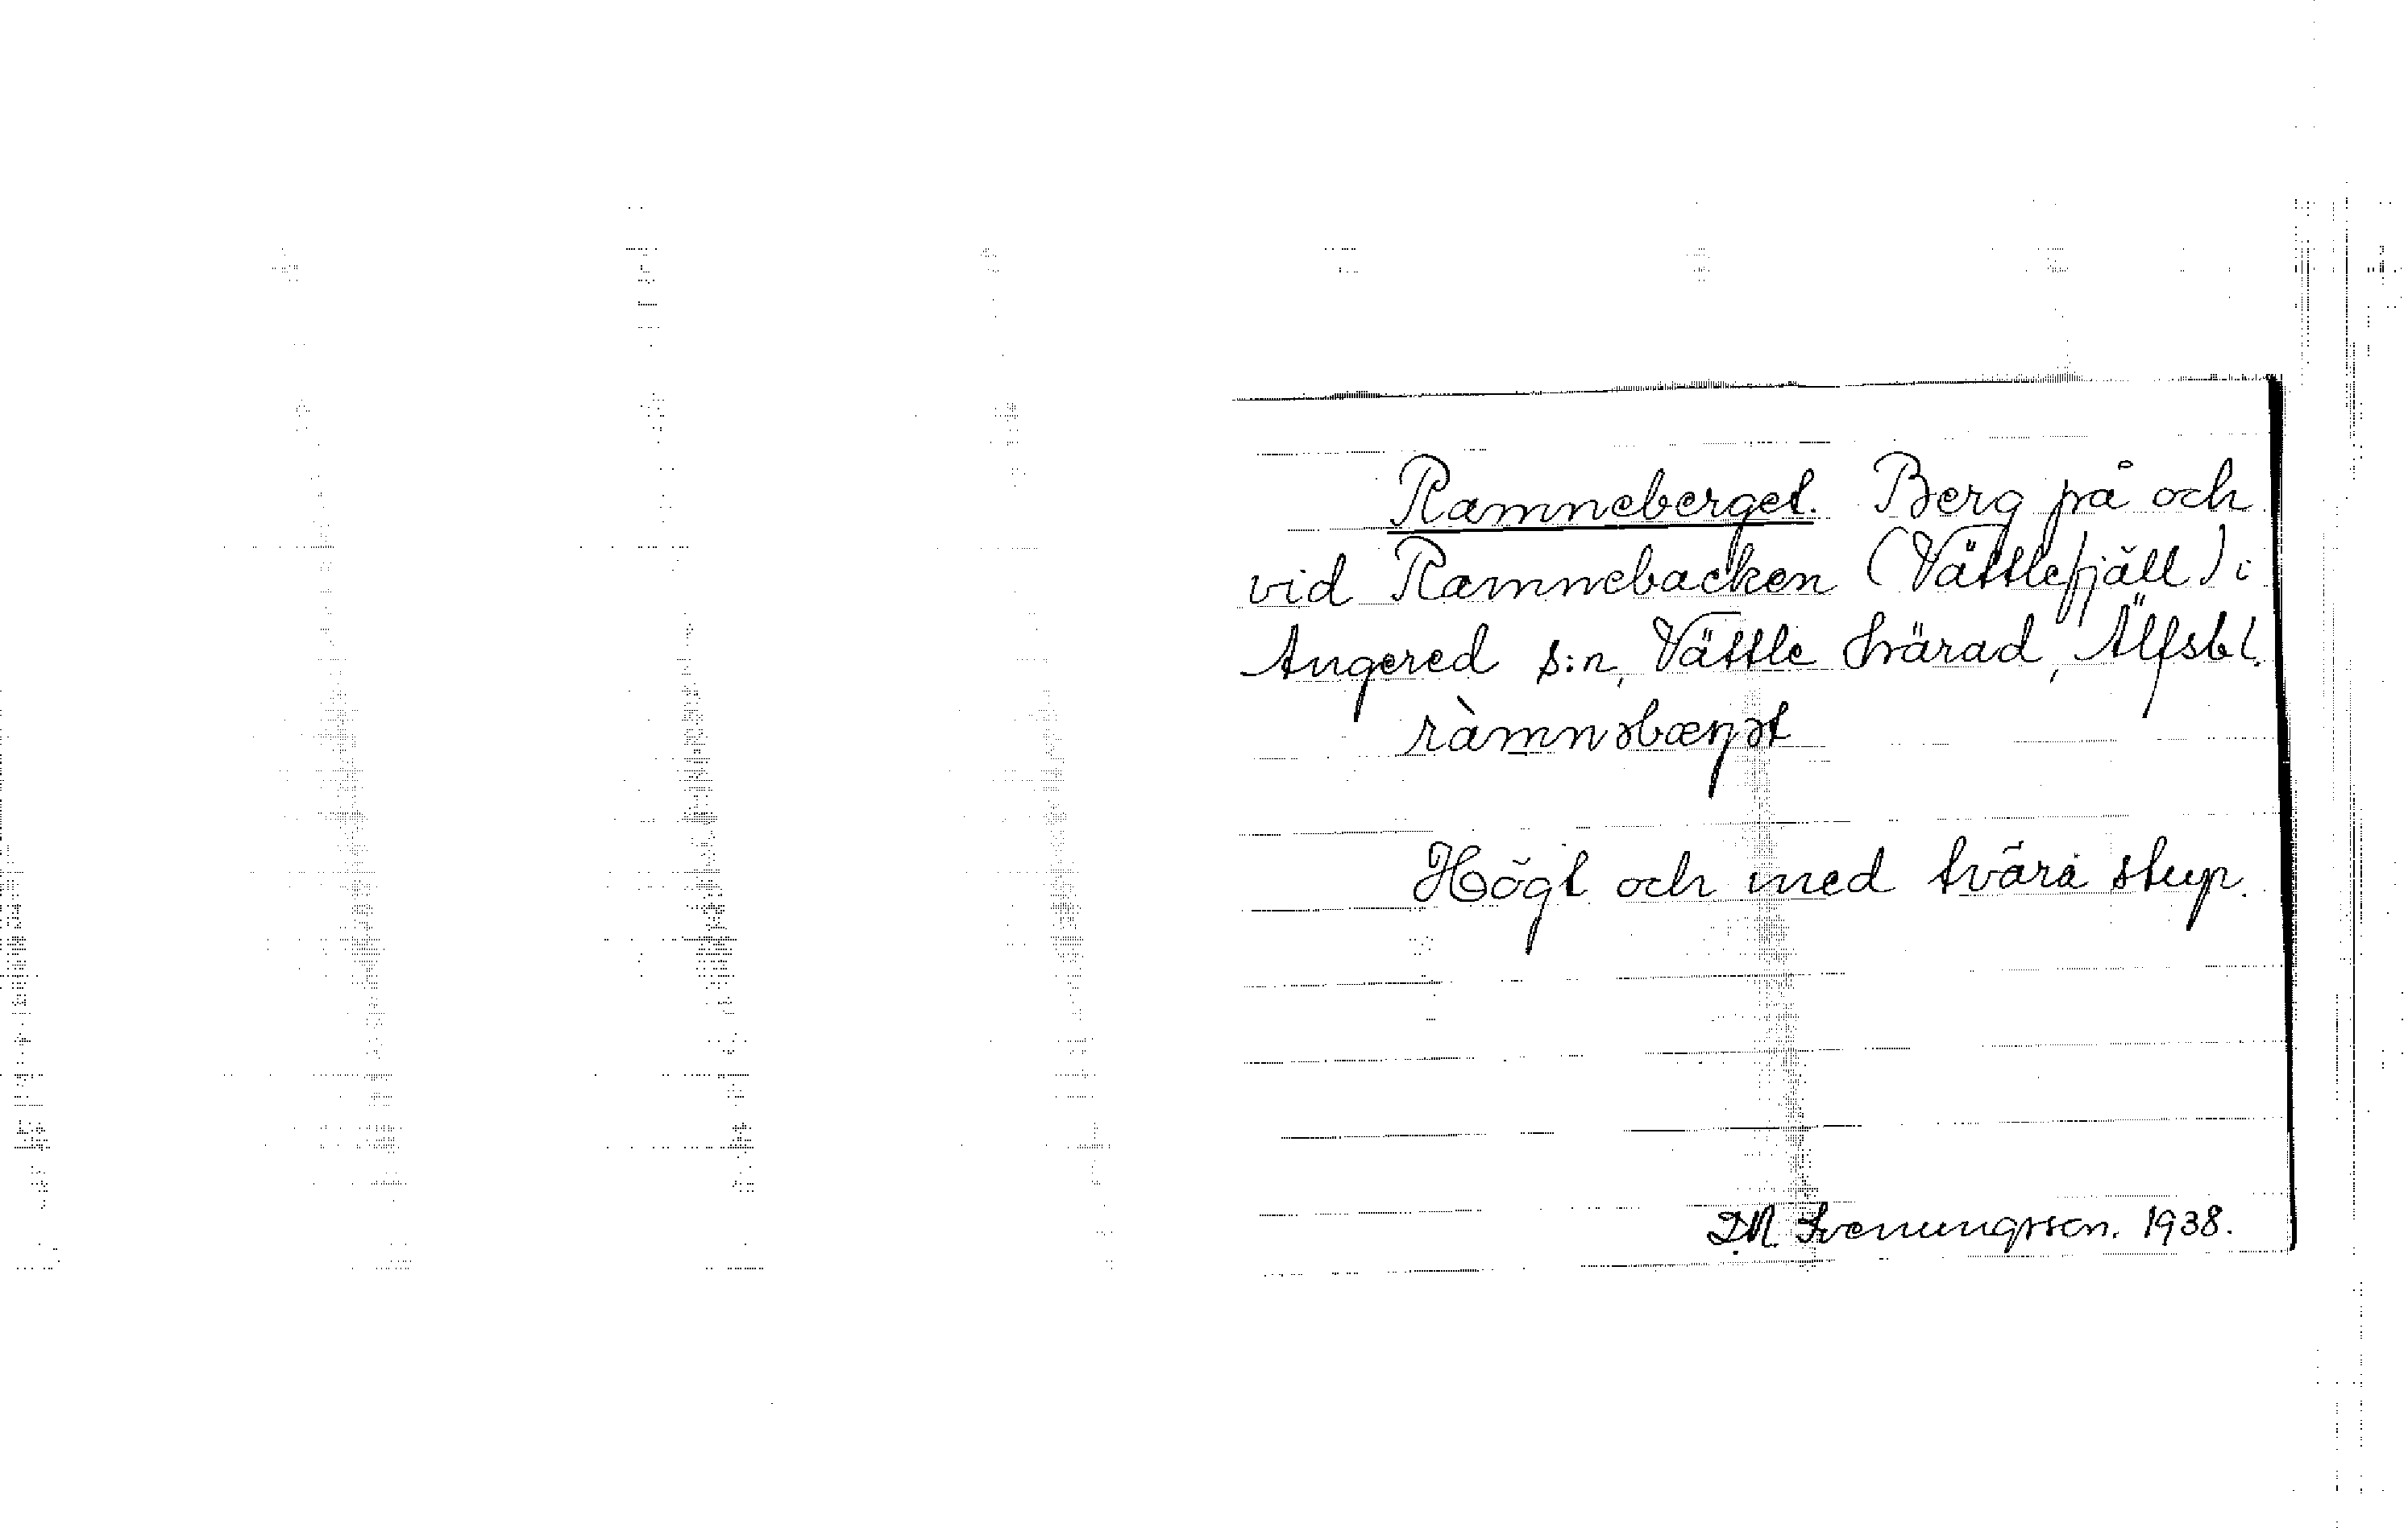 Ramneberget. Berg på och
vid Ramnebacken (Vättlefjäll) i
Angered s:n, Vättle härad, Älfsb l.
ràmnəbæŋət
Högt och med tvära stup.
D.N. Svenungsson. 1938.